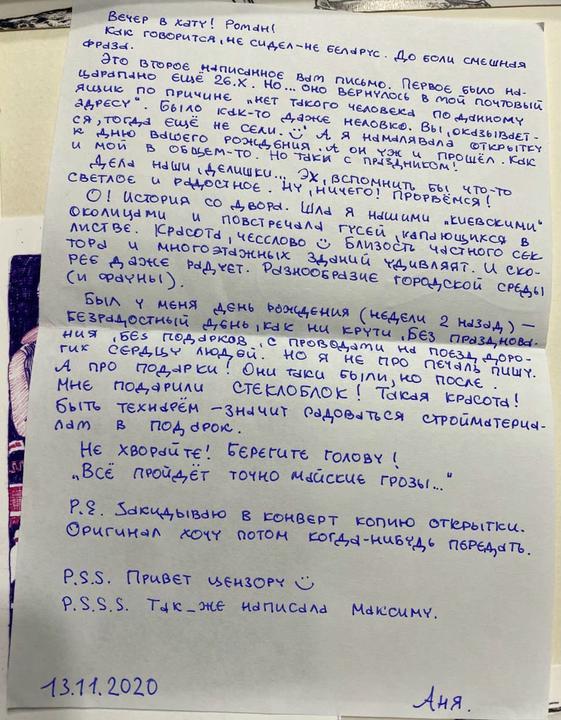 Вечер в хату! Роман!
Как говорится, не сидел – не беларус. До боли смешная
фраза.
Это второе написанное вам письмо. Первое было на-
царапано ещё 26.X. Но... оно вернулось в мой почтовый
ящик по причине „нет такого человека по данному
адресу". Было как-то даже неловко. Вы, оказывает-
ся, тогда ещё не сели.. А я намалявала открытку
к дню вашего рождения. А он уж и прошёл. Как
и мой в общем-то. Но таки с праздником!
Дела наши, делишки... Эх, вспомнить бы что-то
светлое и радостное. Ну, ничего! Прорвёмся!
О! История со двора. Шла я нашими „киевскими"
околицами и повстречала гусей, копающихся в
листве. Красота, чесслово Близость частного сек
тора и многоэтажных зданий удивляят. И ско-
рее даже радует. Разнообразие городской среды
(и фауны).
Был у меня день рождения (недели 2 назад) –
безрадостный день, как ни крути, без празднова-
ния, без подарков, с проводами на поезд доро-
гих сердцу людей. Но я не про печаль пишу.
А про подарки! Они таки были, но после.
Мне подарили стеклоблок! Такая красота!
Быть технарём – значит радоваться стройматериа-
лам в подарок.
Не хворайте! Берегите голову!
„Всё пройдёт точно майские грозы..."
P.S. Закидываю в конверт копию открытки.
Оригинал хочу потом когда-нибудь передать.
P.S.S. Привет цензору
P.S.S.S. Так-же написала Максиму.
13.11.2020
Аня.